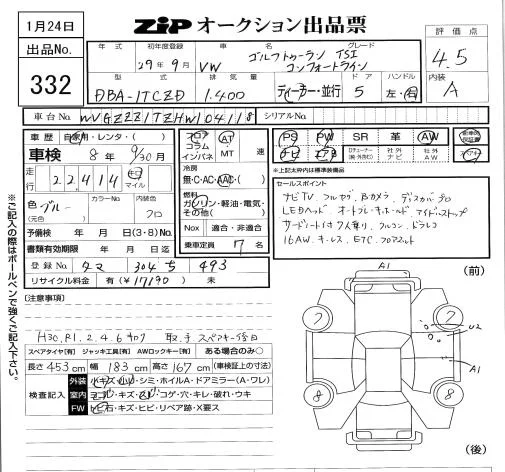 1月24日
ZIP オークション出品票
評価点
4.5
内装
A
出品No.
332
年式 初年度登録 車名 グレード
29年9月 VW ゴルフトゥーラン TSI コンフォートライン
型式 排気量 ドア ハンドル
DBA-1TCZD 1.400 ディーラー・並行 5 左・右
車台No. WVGZZZ1TZHW104118 シリアルNo.
車歴 自家用・レンタ・( )
車検 8年 9/30月
走行 22,414 キロ マイル
色 ブルー カラーNo. 内装色 クロ
(元色)
予備検 年 月 日(3・8)No.
書類有効期限 年 月 日迄
登録No. タマ 304 ち 493
リサイクル料金 有(¥17190) 未
フロア コラム インパネ AT MT 速
冷房
無・C・AC・AAC・( )
燃料
ガソリン・軽油・電気・その他( )
Nox 適合・非適合
乗車定員 7 名
PS PW SR 革 AW
ナビ AW
※上記太枠内は標準装備品
セールスポイント
ナビTV フルセグ Bカメラ ディスカバープロ
LEDヘッド オートブレーキホールド アイドルストップ
サードシート付7人乗り フルコン ドラレコ
16AW キーレス ETC フロアマット
※ご記入の際はボールペンで強くご記入下さい。
[注意事項]
H30.R1.2.4.6キロク 取・予 スペアキー後日
スペアタイヤ[有] ジャッキ工具[有] AWロックキー[有] ある場合のみ○
長さ453cm 幅183cm 高さ167cm (車検証上の寸法)
検査記入
外装 小キズ・小凹・シミ・ホイルA・ドアミラー(A・ワレ)
室内 ヨゴレ・キズ・スレ・コゲ・穴・キレ・破れ・ウキ
FW 飛石・キズ・ヒビ・リペア跡・X要ス
(前)
A1
7
7
U2
A1
8
8
(後)